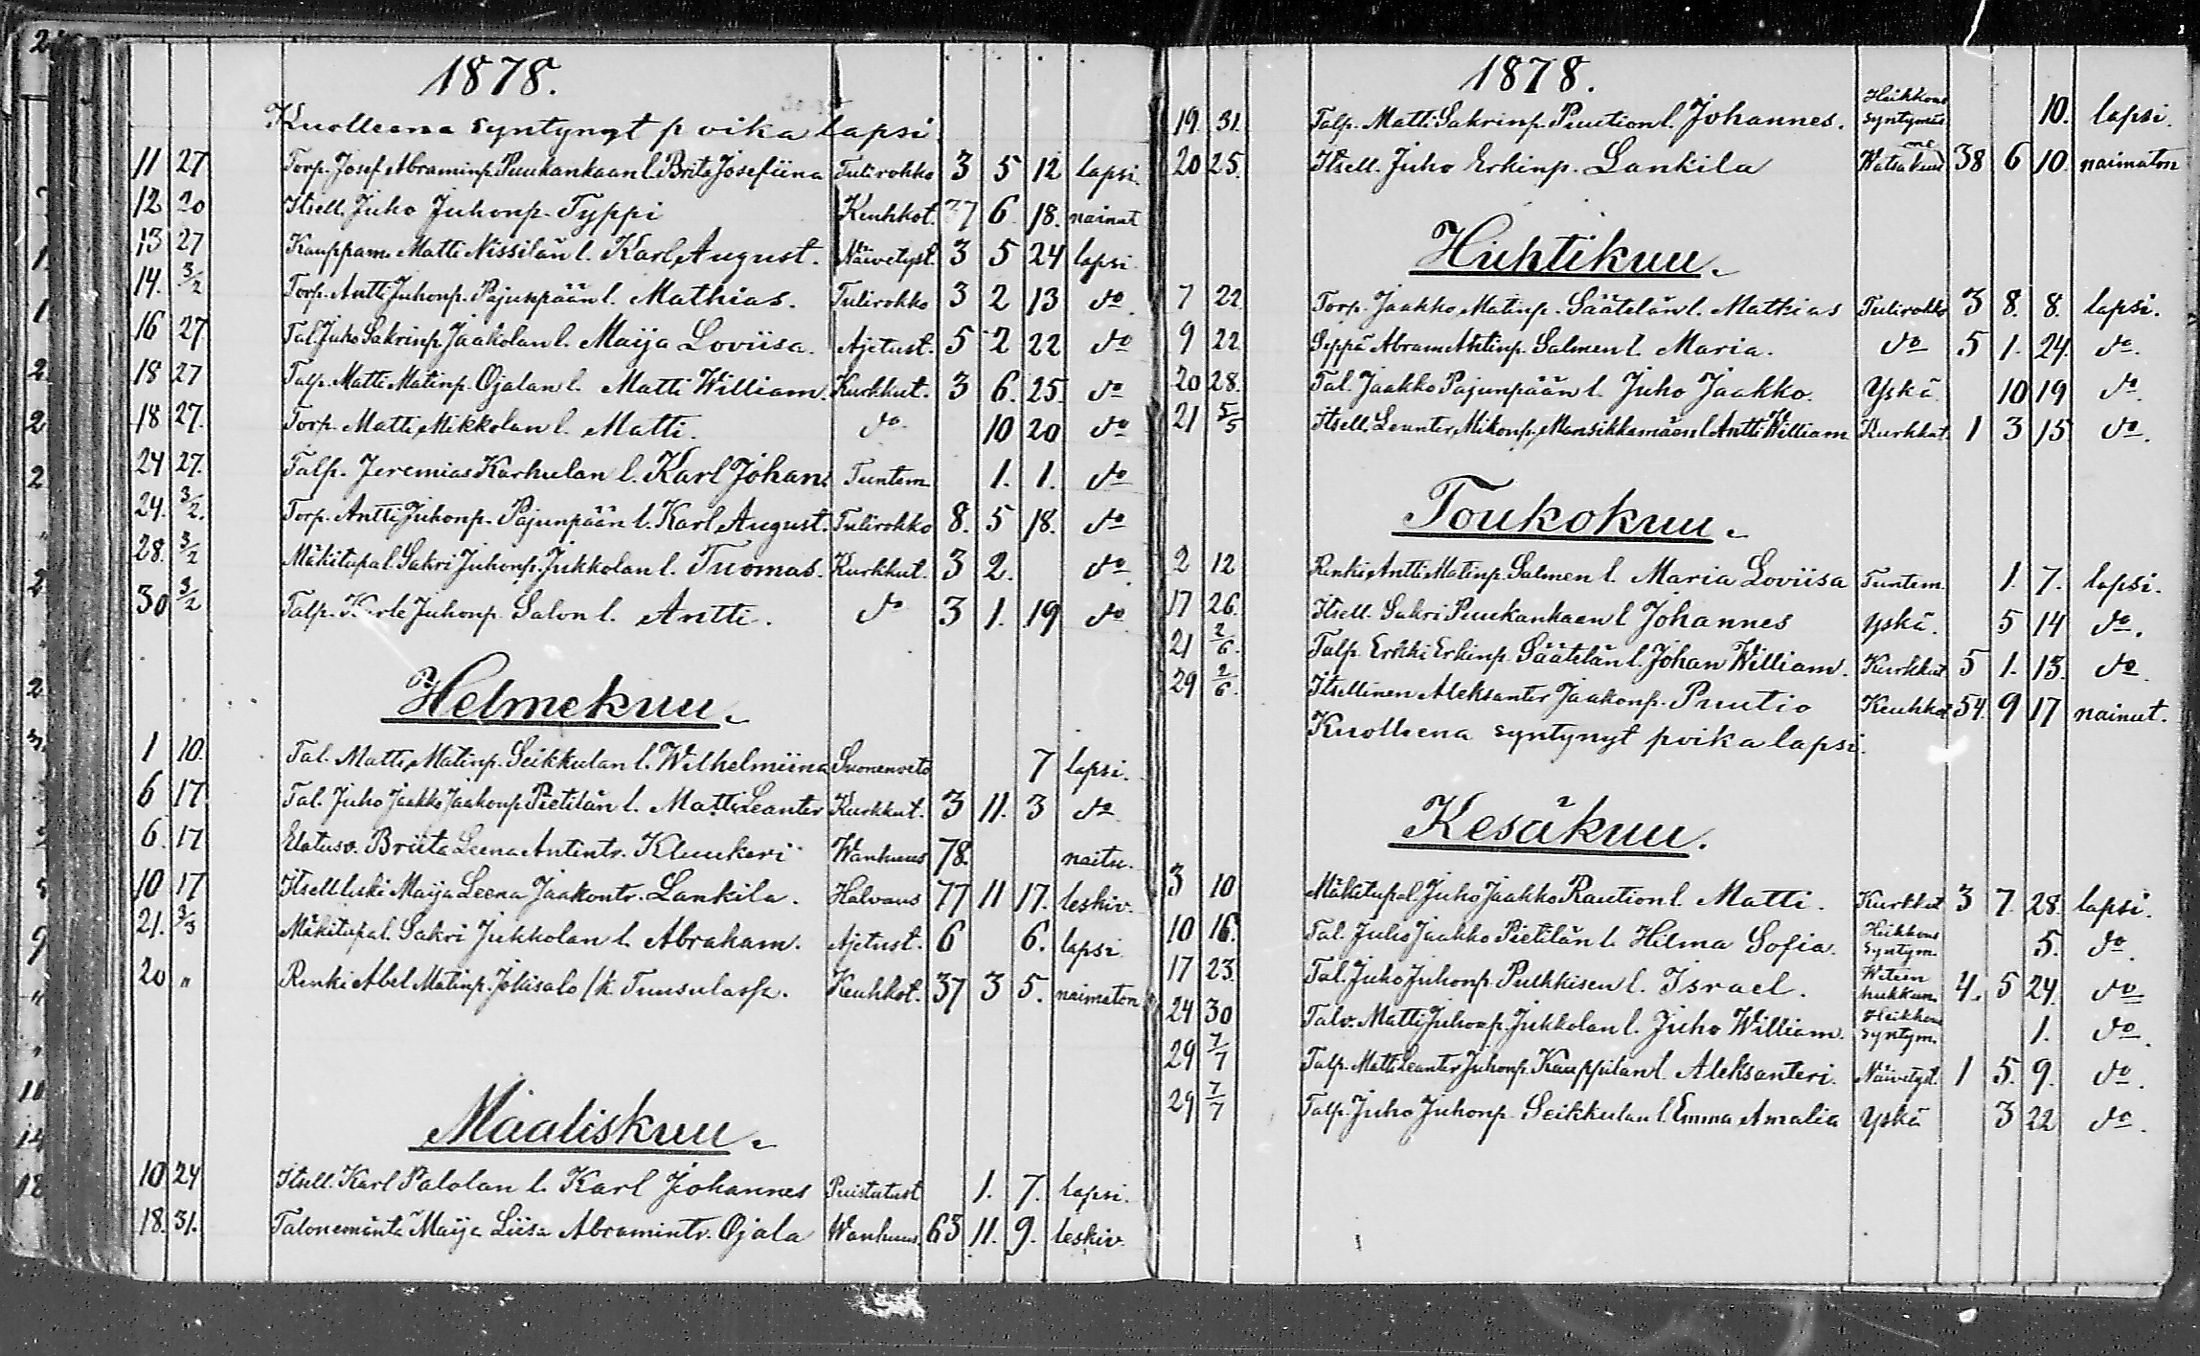 1878.
Kuolleena syntynyt poikalapsi
11 27 Torp. Josef Abraminp. Puukankaan l. Brita Josefiina Tulirokko 3 5 12 lapsi.
12 20 Itsell. Juho Juhonp. Typpi Keuhkot. 37 6. 18. nainut
13 27 Kauppam. Matti Nissilän l. Karl August. Näivetyst. 3 5 24 lapsi
14. 3/2 Torp. Antti Juhonp. Pajunpään l. Mathias. Tulirokko 3 2 13 do.
16 27 Tal. Juho Sakrinp. Jaakolan l. Maija Loviisa. Ajetust. 5 2 22 do
18 27 Talp. Matti Matinp. Ojalan l. Matti William. Kurkkut. 3 6. 25. do
18 27. Torp. Matti Mikkolan l. Matti. do 10 20 do
24 27. Talp. Jeremias Karhulan l. Karl Johan. Tuntem. 1. 1. do
24. 3/2. Torp. Antti Juhonp. Pajunpään l. Karl August. Tulirokko 8. 5 18. do
28. 3/2 Mäkitupal. Sakri Juhonp. Jukkolan l. Tuomas. Kurkkut. 3 2. do.
30 3/2 Talp. Karle Juhonp. Salon l. Antti. do 3 1. 19 do
Helmekuu.
1 10. Tal. Matti Matinp. Seikkulan l. Wilhelmiina Suonenveto 7 lapsi.
6 17 Tal. Juho Jaakko Jaakonp. Pietilän l. Matti Leanter Kurkkut. 3 11. 3 do
6. 17 Elatusv. Briita Leena Antintr. Kluukeri Wanhuus 78. naitu.
10 17 Itsell. leski Maija Leena Jaakontr. Lankila. Halvaus 77 11 17. leskiv.
21. 3/3 Mäkitupal. Sakri Jukkolan l. Abraham. Ajetust. 6 6. lapsi
20 " Renki Abel Matinp. Jokisalo /k. Tuusulassa. Keuhkot. 37 3 5. naimaton
Maaliskuu.
10 24 Itsell. Karl Palolan l. Karl Johannes Puistutust 1. 7. lapsi.
18. 31. Talonemäntä Maija Liisa Abramintr. Ojala Wanhuus. 63 11. 9. leskiv.
1878.
19. 31. Talp. Matti Sakrinp. Puution l. Johannes. Heikkous syntymäs 10. lapsi.
20 25. Itsell. Juho Erkinp. Lankila 38 6 10. naimaton
Huhtikuu.
7 22 Torp. Jaakko Matinp. Säätelän l. Mathias Tulirokko 3 8. 8. lapsi.
9 22 Seppä Abram Anttinp. Salmen l. Maria. do 5 1. 24. do.
20 28. Tal. Jaakko Pajunpään l. Juho Jaakko. Yskä 10 19 do.
21 5/5 Itsell. Leanter Mikonp. Mansikkamäen l. Antti William Kurkkut. 1 3 15 do.
Toukokuu.
2 12 Renki Antti Matinp. Salmen l. Maria Loviisa Tuntem. 1. 7. lapsi.
17 26. Itsell. Sakri Puukankaan l Johannes Yskä. 5 14 do.
21 2/6. Talp. Erkki Erkinp. Säätelän l. Johan William. Kurkkut. 5 1. 13. do
29 2/6. Itsellinen Aleksanter Jaakonp. Puutio Keuhkot 54. 9 17 nainut.
Kuolleena syntynyt poikalapsi.
Kesäkuu.
3 10 Mäkitupal. Juho Jaakko Raution l. Matti. Kurkkut 3 7. 28. lapsi.
10 16. Tal. Juho Jaakko Pietilän l. Hilma Sofia. Heikkous Syntym. 5. do.
17 23. Tal. Juho Juhonp. Pulkkisen l. Israel. Weteen hukkun. 4. 5 24. do
24 30 Talv. Matti Juhonp. Jukkolan l. Juho William. Heikkous Syntym. 1. do.
29 7/7 Talp. Matti Leanter Juhonp. Kauppilan l. Aleksanteri. Näivetyst. 1 5. 9. do.
29 7/7 Talp. Juho Juhonp. Seikkulan l. Emma Amalia Yskä 3 22 do.